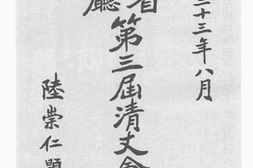 二十三年八月
省
廳第三屆清丈會
陸崇仁題